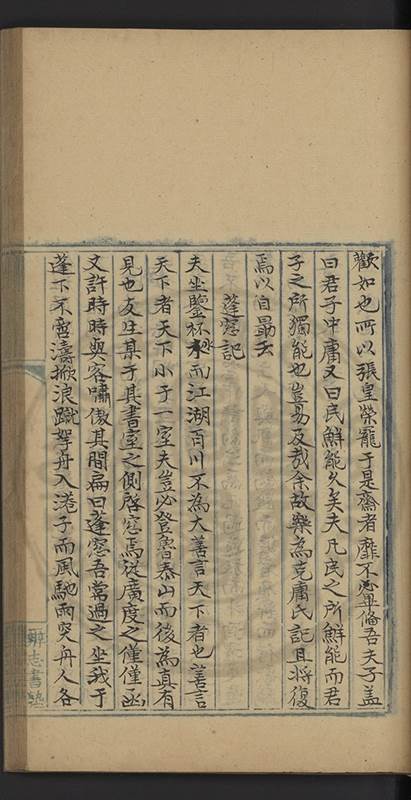 歡如也所以張皇榮寵于是齋者靡不畢備吾夫子蓋
曰君子中庸又曰民鮮能久矣夫凡民之所鮮能而君
子之所獨能也豈易及哉余故樂為克庸氏記且將復
焉以自勗云
蓬窓記
夫坐鑒杯水而江湖百川不為大善言天下者也善言
天下者天下小于一室夫豈必登魯泰山而後為真有
見也友生某于其書室之側啓窓焉從廣度之僅僅函
丈許時時與客嘯傲其間扁曰蓬窓吾嘗過之坐我于
蓬下不啻濤掀浪蹴拏舟入港子而風馳雨突舟人各
辨志書塾